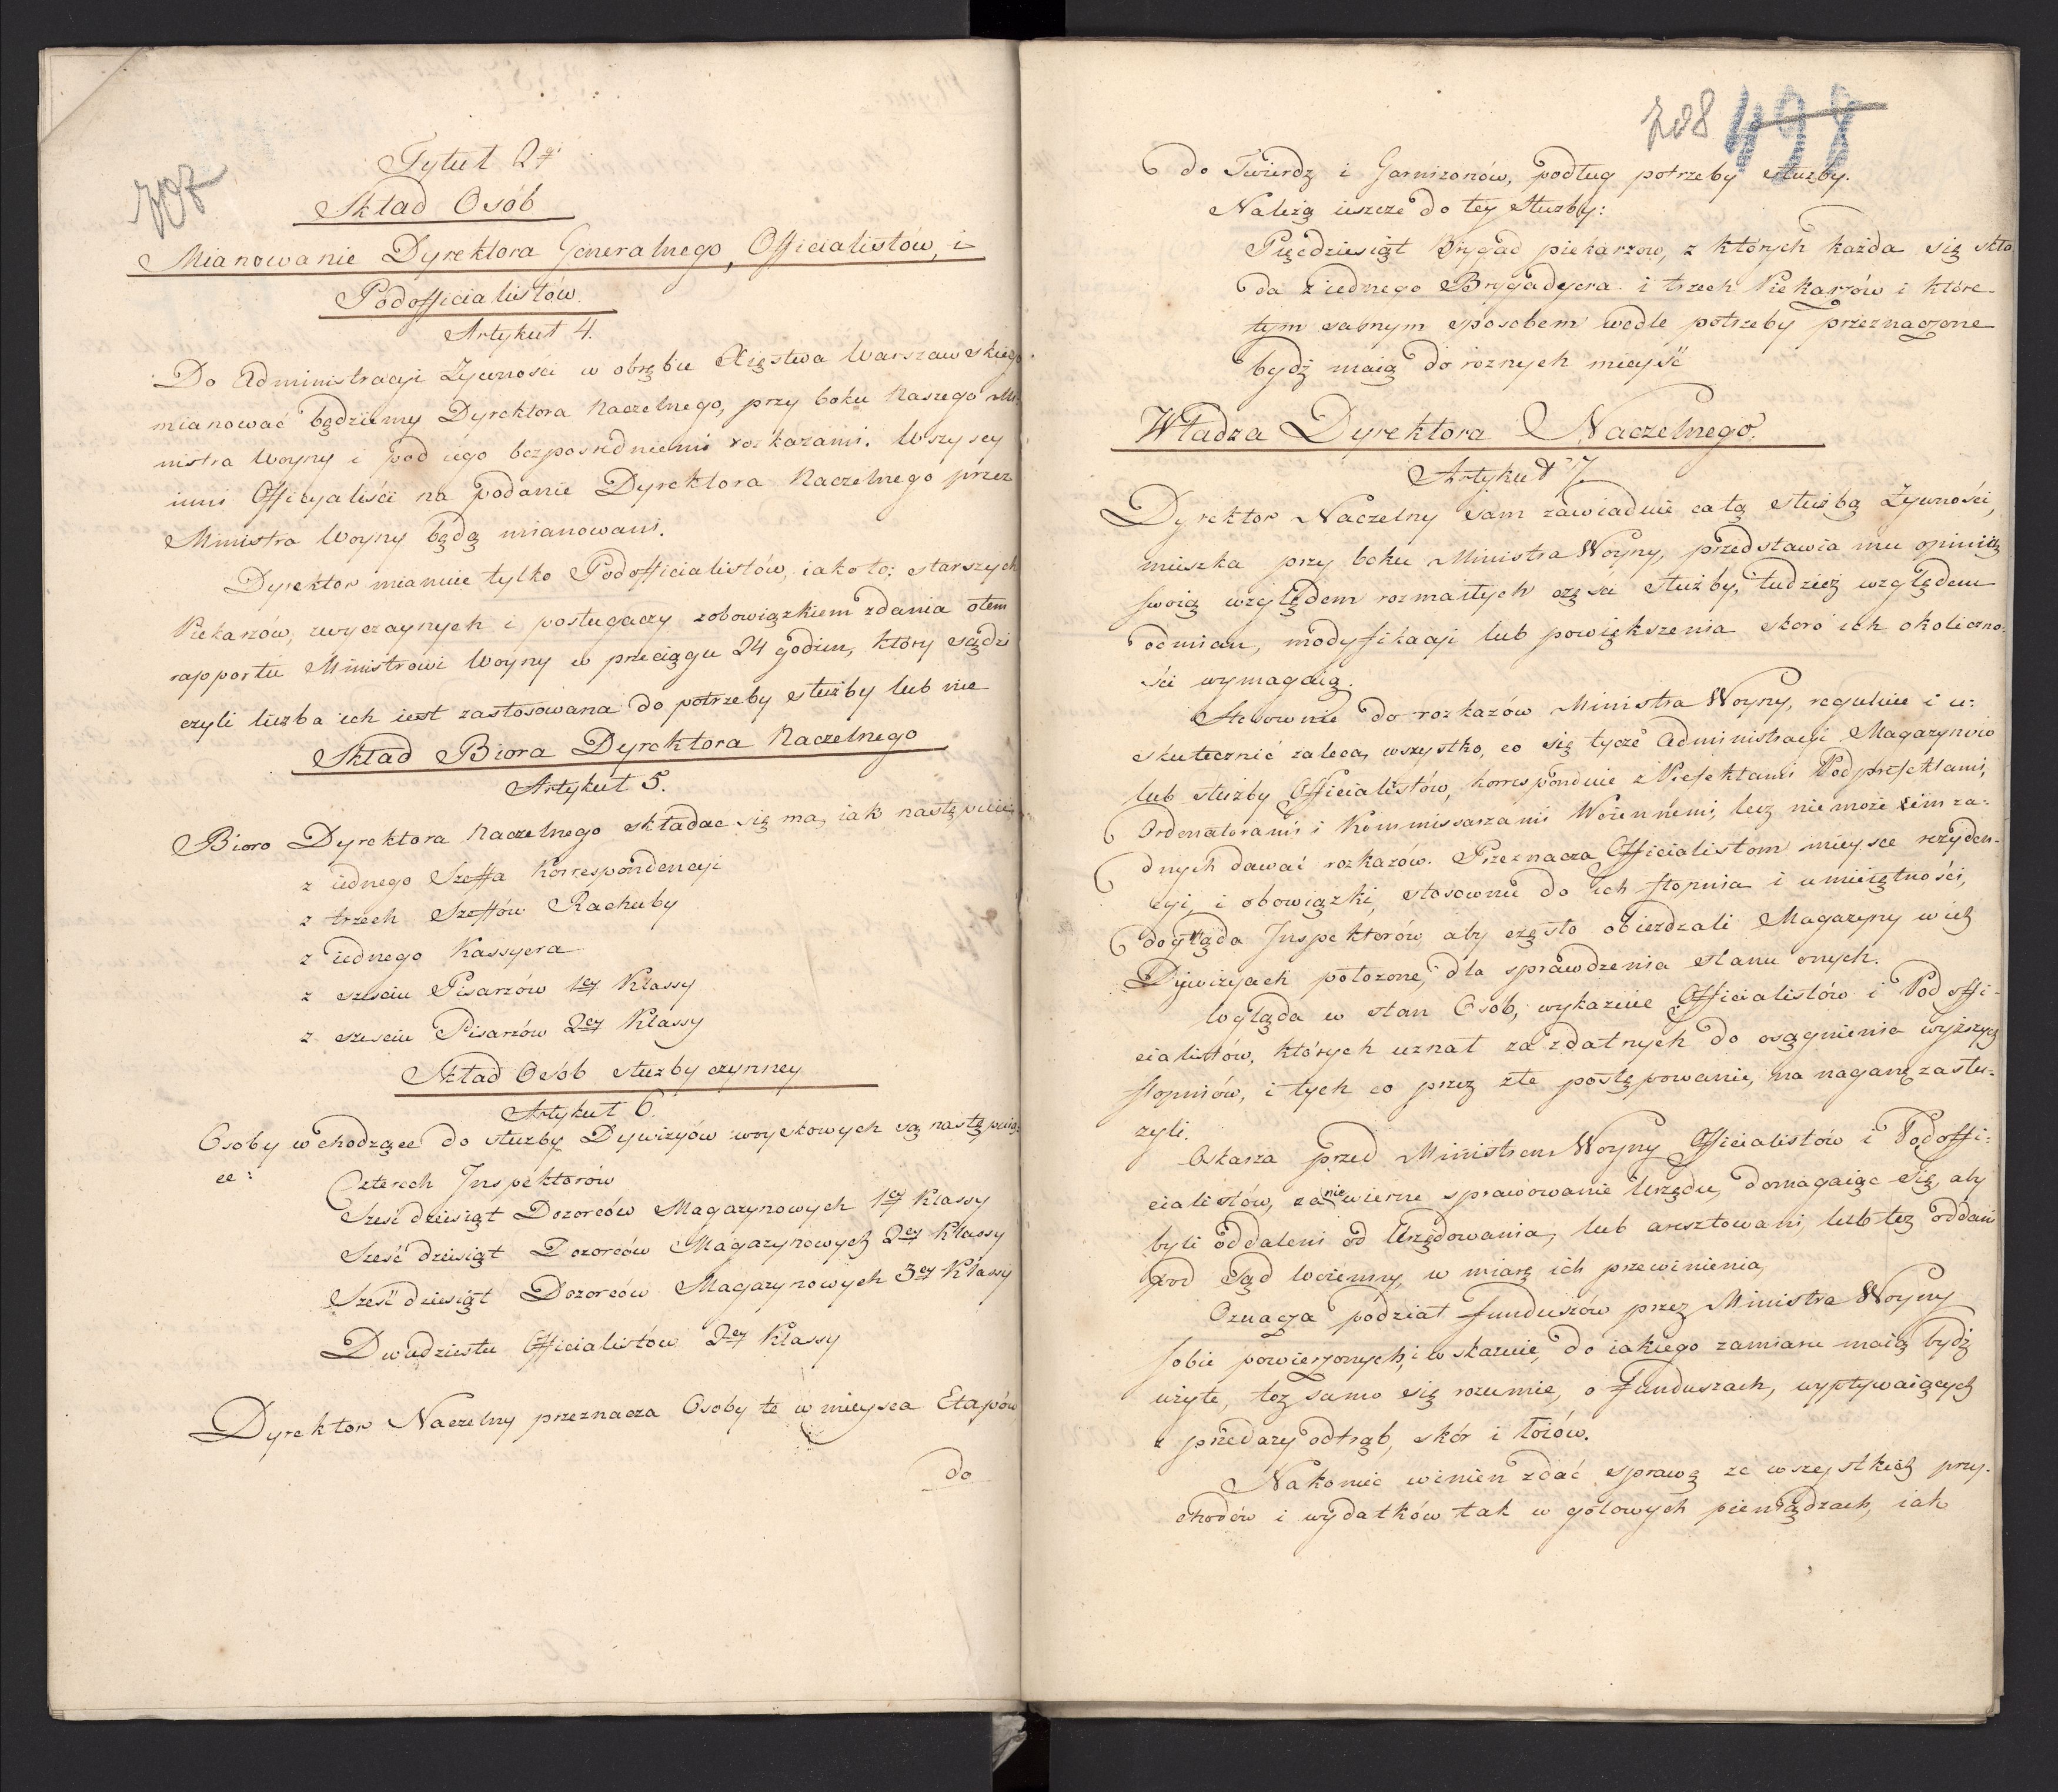 707
Tytuł 2gi
Skład Osób
Mianowanie Dyrektora Generalnego, Officialistów, i
Podofficialistów.
Artykuł 4.
Do Administracyi Żywności w obrębie Xięstwa Warszawskiego
mianować będziemy Dyrektora Naczelnego, przy boku Naszego Mi-
nistra Woyny i pod iego bezpośredniemi rozkazami. Wszyscy
inni Officyaliści na podanie Dyrektora Naczelnego przez
Ministra Woyny będą mianowani.
Dyrektor mianuie tylko Podofficialistów, iako to: starszych
Piekarzów, zwyczaynych i posługaczy z obowiązkiem zdania o tem
rapportu Ministrowi Woyny w przeciągu 24 godzin, który sądzi
czyli liczba ich iest zastosowana do potrzeby służby lub nie
Skład Biora Dyrektora Naczelnego
Artykuł 5.
Bioro Dyrektora Naczelnego składać się ma, iak następuie:
z iednego Szeffa Korrespondencyi
z trzech Szeffów Rachuby
z iednego Kassyera
z sześciu Pisarzów 1ey Klassy
z sześciu Pisarzów 2ey Klassy
Skład Osób służby czynney
Artykuł 6.
Osoby wchodzące do służby Dywizyów woyskowych są następuią-
ce:
Czterech Inspektorów
Sześćdziesiąt Dozorców Magazynowych 1ey Klassy
Sześćdziesiąt Dozorców Magazynowych 2ey Klassy
Sześćdziesiąt Dozorców Magazynowych 3ey Klassy
Dwudziestu Officialistów 2ey Klassy
Dyrektor Naczelny przeznacza Osoby te w mieysca Etapów
do
708 498
do Twierdz i Garnizonów, podług potrzeby służby.
Należą ieszcze do tey służby:
Pięćdziesiąt Brygad piekarzow, z których każda się skła
da z iednego Brygadyera i trzech Piekarzów i które
tym samym sposobem wedle potrzeby przeznaczone
bydź maią do roznych mieysć
Władza Dyrektora Naczelnego.
Artykuł 7.
Dyrektor Naczelny sam zawiaduie całą służbą Żywności,
mieszka przy boku Ministra Woyny, przedstawia mu opinią
swoią względem rozmaitych części służby, tudzież względem
odmian, modyfikacyi lub powiększenia skoro ich okoliczno-
ści wymagaią.
Stosownie do rozkazów Ministra Woyny, reguluie i u-
skutecznić zaleca, wszystko, co się tycze Administracyi Magazynów
lub służby Officialistów, korresponduie z Prefektami Podprefektami,
Ordonatorami i Kommissarzami Woiennemi, lecz nie może im ża-
dnych dawać rozkazów. Przeznacza Officialistom mieysce rezyden-
cyi, i obowiązki, stosownie do ich stopnia i umieiętności,
dogląda Inspektorów aby często obieżdzali Magazyny w ich
Dywizyach położone, dla sprawdzenia stanu onych.
Wgląda w stan Osob, wykazuie Officialistów i Podoffi-
cialistów, których uznał za zdatnych do osągnienia wyższych
stopniów, i tych co przez złe postępowanie, na naganę zasłu-
żyli.
Oskarża przed Ministrem Woyny Officialistów i Podoffi-
cialistów, za niewierne sprawowanie Urzędu, domagaiąc się, aby
byli oddaleni od Urzędowania, lub aresztowani, lub też oddani
pod Sąd woienny, w miarę ich przewinienia,
Oznacza podział funduszów przez Ministra Woyny
sobie powierzonych, i wskazuie, do iakiego zamiaru maią bydź
użyte, toż samo się rozumie, o Funduszach, wypływaiących
z przedaży odtrąb, skór i łoiów.
Nakoniec winien zdać sprawę ze wszystkich przy-
chodów i wydatków tak w gotowych pieniądzach, iak